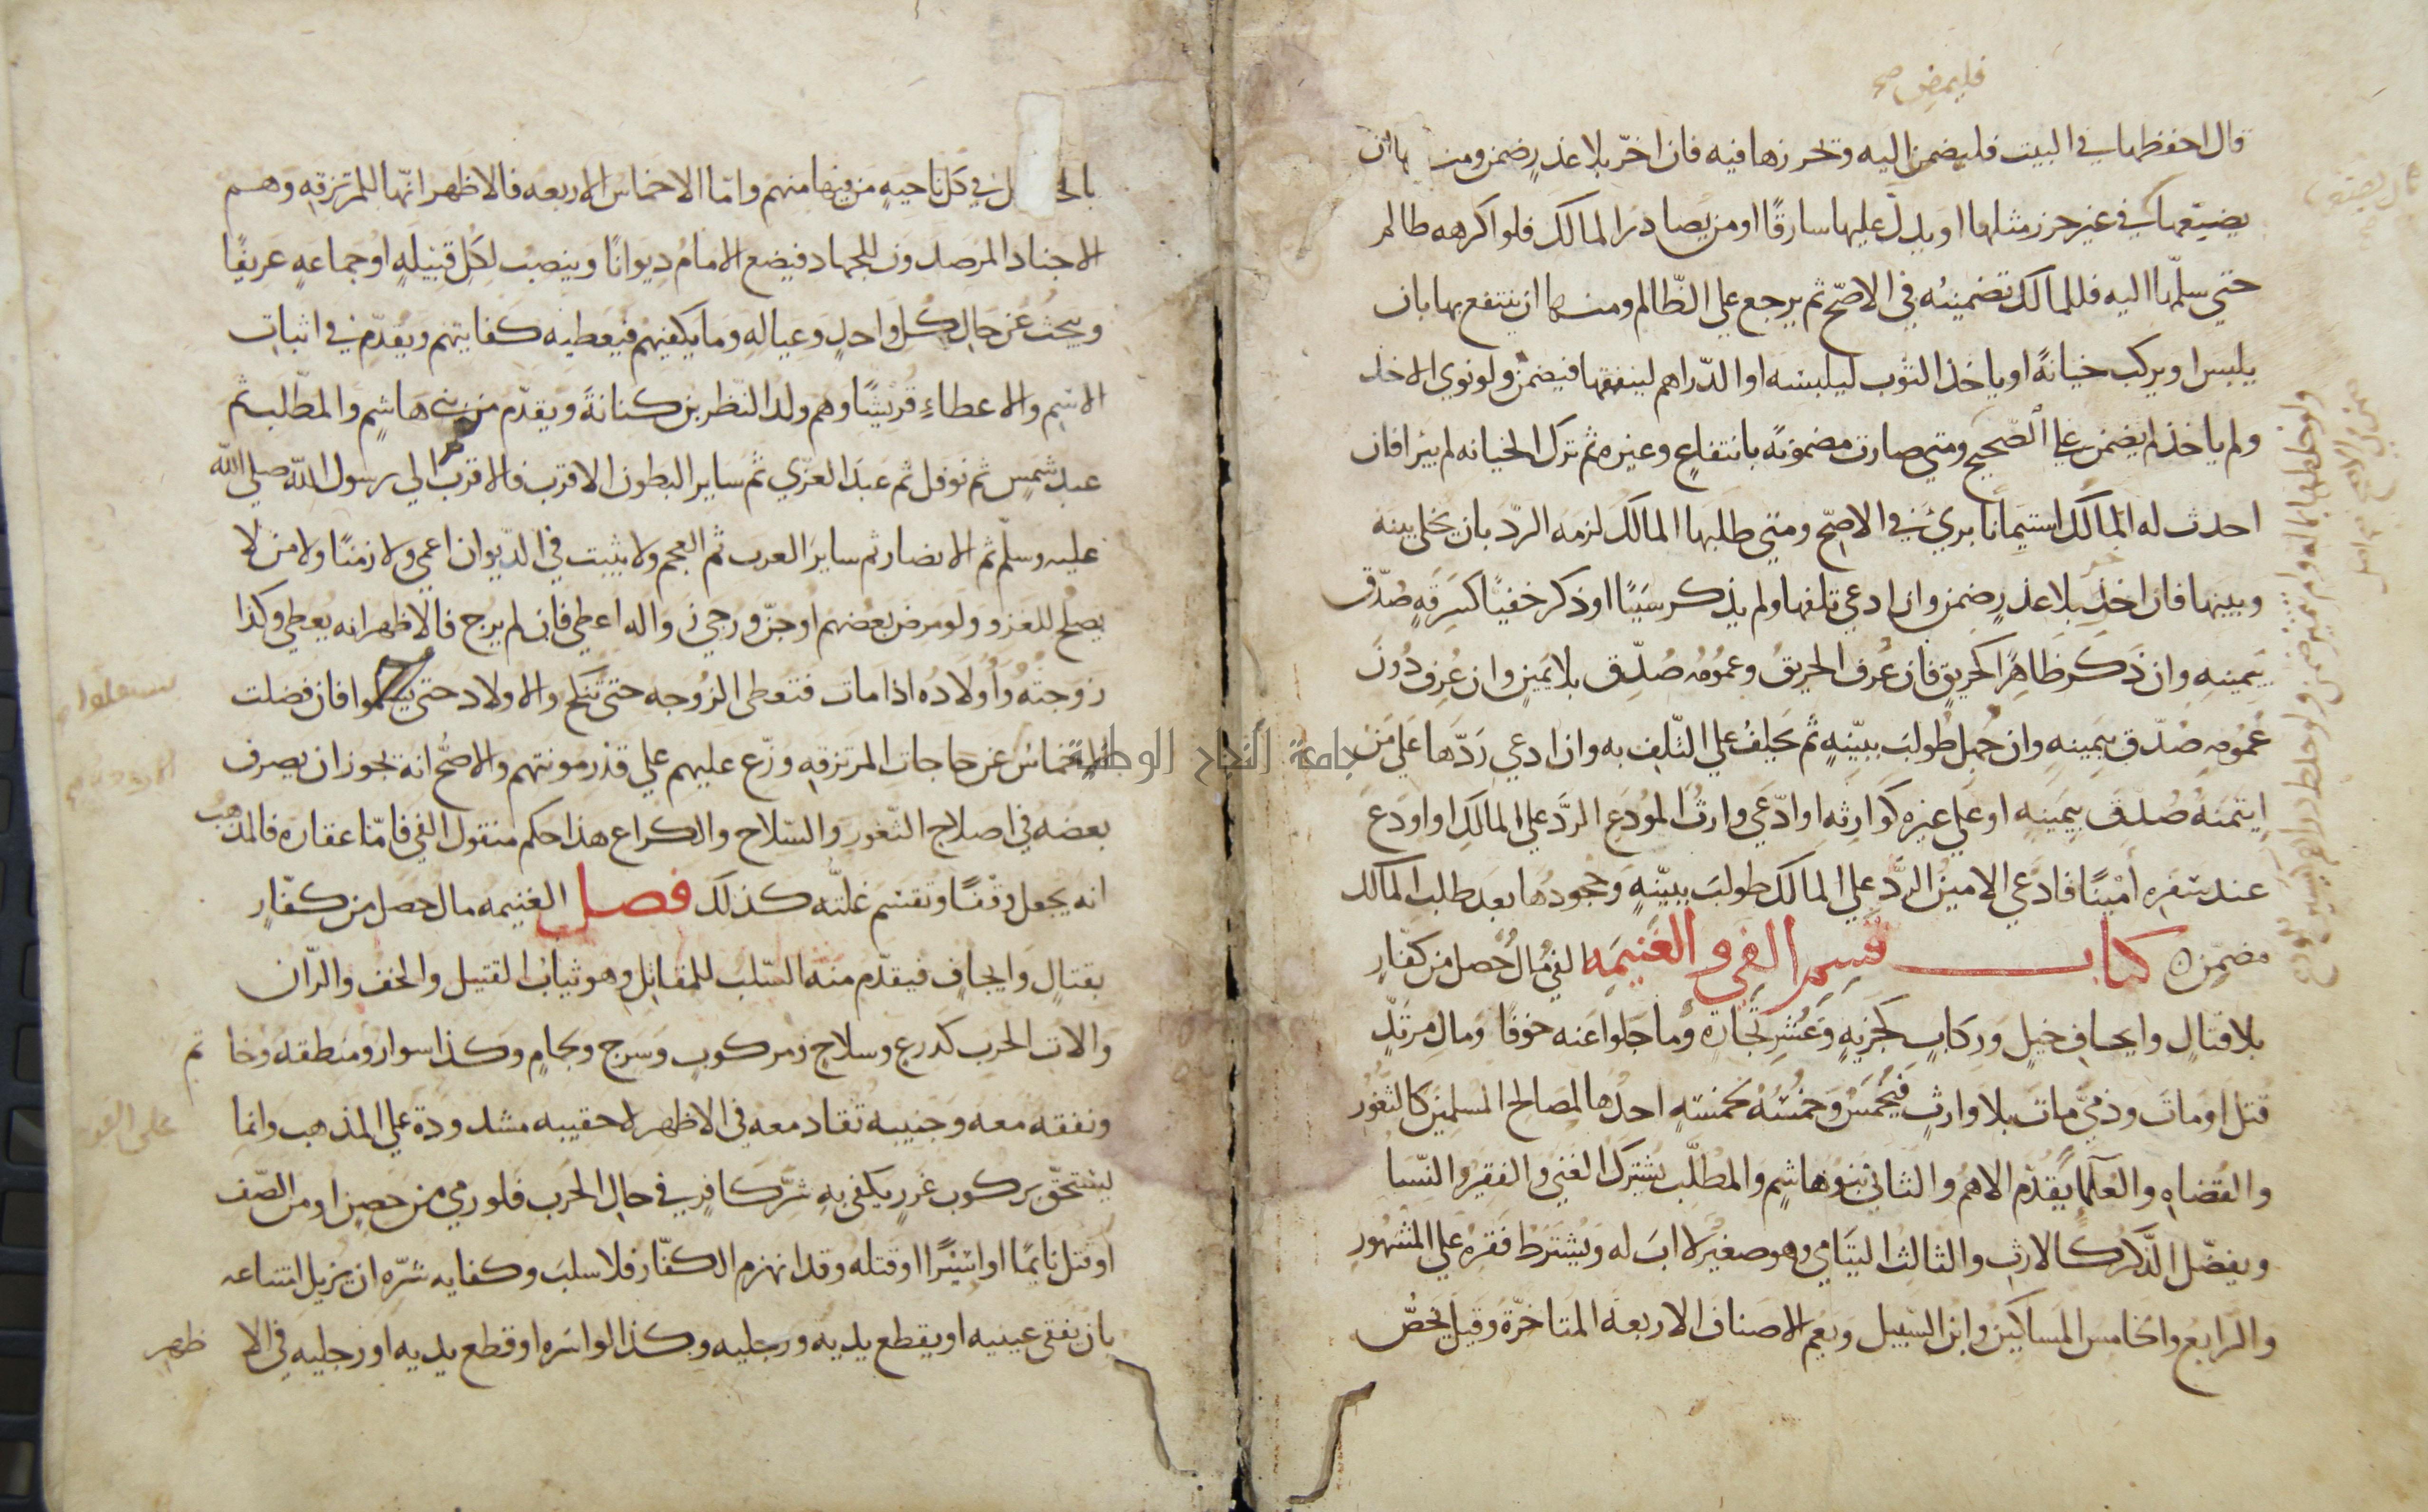 فليمض صح
قال احفظها في البيت فليمض اليه ويحرزها فيه فان اخّر بلا عذرٍ ضمن ومنها ان
يضيّعها في غير حرز مثلها او يدلّ عليها سارقًا او من يصادر المالك فلو اكرهه ظالم
حتي سلّمها اليه فللمالك تضمينُه في الاصّح ثم يرجع علي الظّالم ومنها ان ينتفع بها بان
يلبس او يركب خيانةً او ياخذ الثوب ليلبسه او الدّراهم لينفقها فيضمن ولو نوي الاخذ
ولم ياخذ لم يضمن علي الصّحيح ومتي صارت مضمونةً بانتفاعٍ وغيره ثم ترك الخيانه لم يبرا فان
احدث له المالك استيمانًا بريَ في الاصّح ومتي طلبها المالك لزمه الردّ بان يخلي بينه
وبينها فان اخر بلا عذرٍ ضمن وان ادعي تلفها ولم يذكر سَببًا او ذكر خفيًا كسَرقهٍ صُدّق
بيَمينهِ وان ذَكرَ ظاهرًا كحريقٍ فان عُرف الحريقُ وعمُومُه صُدّق بلا يَمينٍ وان عُرف دُونَ
عُمُومهِ صُدّق بيمينهِ وان جُهِل طُولبَ ببيّنهٍ ثم يَحلِفُ علي التّلف به وان ادعي رَدّها علي مَن
ايتمنهُ صُدّق بيَمينهِ او علي غيره كوارثه او ادّعَي وارثُ المُودَع الردَّ علي المالكِ او اودَع
عند سَفره امينًا فادعي الامينُ الردَّ علي المالك طولبَ ببيّنهٍ وجُحودُها بعد طلب المالك
مضمّن كتاب قسم الفي والغنيمه الفي مال حصل من كفّارٍ
بلا قتالٍ وايجاف خيلٍ وركابٍ كجزيهٍ وعُشرِ تجارة وما جلوا عنه خوفًا ومال مرتدٍّ
قتل او مات وذميّ مات بلا وارثٍ فيُخمّسُ وخمُسُهُ لخمسهٍ احدُها لمصالح المسلمين كالثغُور
والقضاه والعلما يُقدّم الاهمُ والثاني بنو هاشمٍ والمطّلب يشترك الغني والفقير والنّسا
ويفضّل الذكر كالارث والثالث اليتامي وهو صغيرٌ لا ابَ له ويُشترَط فقرُهُ علي المشهُور
والرابع والخامس المساكين وابن السّبيل ويعم الاصناف الاربعة المتاخرة وقيل يخصُّ
في كل ناحيهٍ من فيها منهم وامّا الاخماس الاربعه فالاظهر انّها للمرتزقه وهم
الاجناد المرصدون للجهاد فيضع الامامُ ديوانًا وينصب لكل قبيلهٍ او جماعهٍ عريفًا
ويبحث عن حال كل واحدٍ وعياله وما يكفيهم فيعطيه كفايتهم ويقدّم في اثبات
الاسم والاعطاءِ قريشًا وهم ولد النّظر بن كنانةَ ويقدّم من بني هاشمٍ والمطّلب ثم
عبد شمسٍ ثم نوفل ثم عبد العزّي ثم ساير البطون الاقرب فالاقرب الي رسول اللّه صلي اللّه
عليه وسلّم ثم الانصار ثم ساير العرب ثم العجم ولا يثبت في الدّيوان اعمي ولا زمنًا ولا من لا
يصلح للغزو ولو مرض بعضهم او جنّ ورجي زواله اعطي فان لم يرج فالاظهر انه يعطي وكذا
زوجتُه واولاده اذا مات فتعطي الزوجه حتى تنكح والاولاد حتي يستقلوا فان فضلت
الاخماس عن حاجات المرتزقه وزّع عليهم علي قدر مونتهم والاصّح انه يجوز ان يصرف
بعضه في اصلاح الثّغور والسّلاح والكراع هذا حكم منقول الفي فامّا عقاره فالمذهب
انه يجعل وقفًا وتقسم غلّته كذلك فصل الغنيمه مال حصل من كفّارٍ
بقتالٍ وايجافٍ فيقدّم منه السّلب للمقاتل وهو ثياب القتيل والخف والرّان
والات الحرب كدرع وسلاحٍ ومركوبٍ وسرجٍ ولجامٍ وكذا سوار ومنطقه وخا تم
ونفقه معه وجنيبه تقاد معه في الاظهر لا حقيبه مشدودة علي المذهب وانما
يستحقّ بركوب غررٍ يكفي به شرّ كافرٍ في حال الحرب فلو رمي من حصنٍ او من الصّف
او قتل نايمًا او اسيرًا او قتله وقد انهزم الكفّار فلا سلبَ وكفايه شرّه ان يزيل امتناعه
بان يفقي عينيه او يقطع يديه ورجليه وكذا لو اسره او قطع يديه او رجليه في الا ظهر
جامعة النجاح الوطنية